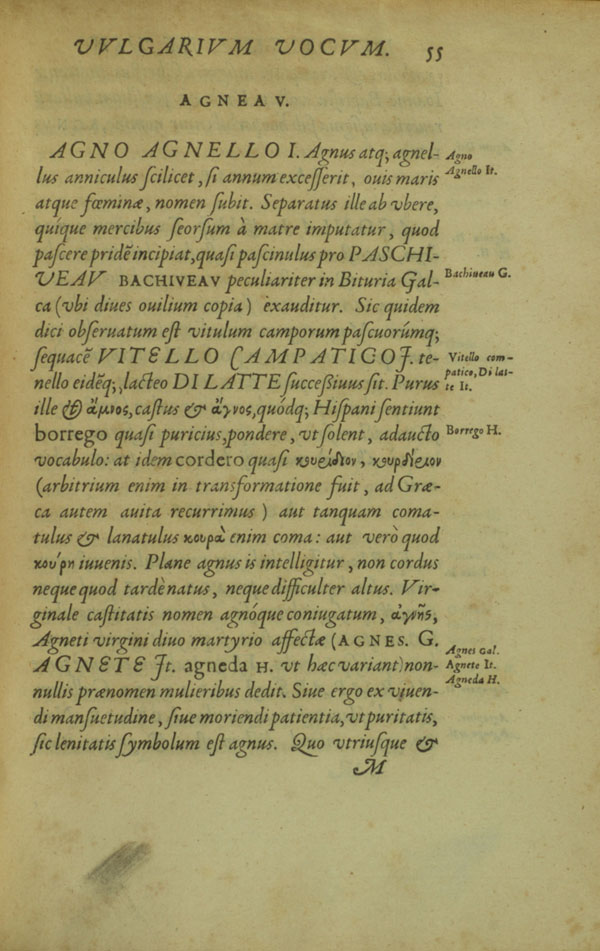 VVLGARIVM VOCVM. 55
AGNEAV.
AGNO AGNELLO I. Agnus atq; agnel-
lus anniculus scilicet, si annum excesserit, ouis maris
atque fœminæ, nomen subit. Separatus ille ab vbere,
quique mercibus seorsum à matre imputatur, quod
pascere pridẽ incipiat, quasi pascinulus pro PASCHI-
VEAV BACHIVEAV peculiariter in Bituria Gal-
ca (vbi diues ouilium copia) exauditur. Sic quidem
dici obseruatum est vitulum camporum pascuorúmq;
sequacẽ VITELLO CAMPATICO I. te-
nello eidẽq;, lacteo DI LATTE successiuus sit. Purus
ille & ἄμνος, castus & ἄγνος, quódq; Hispani sentiunt
borrego quasi puricius, pondere, vt solent, adaucto
vocabulo: at idem cordero quasi κουρίδιον, κουρδίελον
(arbitrium enim in transformatione fuit, ad Græ-
ca autem auita recurrimus) aut tanquam coma-
tulus & lanatulus κουρὰ enim coma: aut verò quod
κούρη iuuenis. Plane agnus is intelligitur, non cordus
neque quod tardè natus, neque difficulter altus. Vir-
ginale castitatis nomen agnóque coniugatum, ἁγνῆς,
Agneti virgini diuo martyrio affectæ (AGNES. G.
AGNETE It. agneda H. vt hæc variant) non-
nullis prænomen mulieribus dedit. Siue ergo ex viuen-
di mansuetudine, siue moriendi patientia, vt puritatis,
sic lenitatis symbolum est agnus. Quo vtriusque &
M
Agno
Agnello It.
Bachiueau G.
Vitello com-
patico, Di lat-
te It.
Borrego H.
Agnes Gal.
Agnete It.
Agneda H.